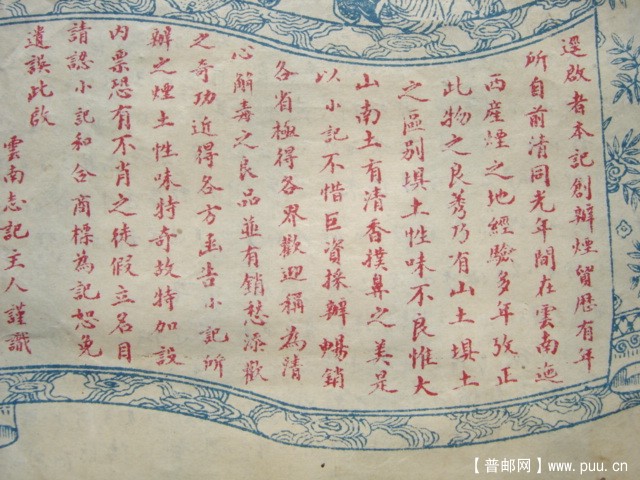 逕啟者本記創辦煙貿歷有年
所自前清同光年間在雲南迤
西產煙之地經驗多年攷正
此物之良莠乃有山土埧土
之區別埧土性味不良惟大
山南土有清香撲鼻之美是
以小記不惜巨資採辦暢銷
各省極得各界歡迎稱為清
心解毒之良品並有銷愁添歡
之奇功近得各方函告小記所
辦之煙土性味特奇故特加設
內票恐有不肖之徒假立名目
請認小記和合商標為記恕免
遺誤此啟
雲南志記主人謹識
【普邮网】www.puu.cn